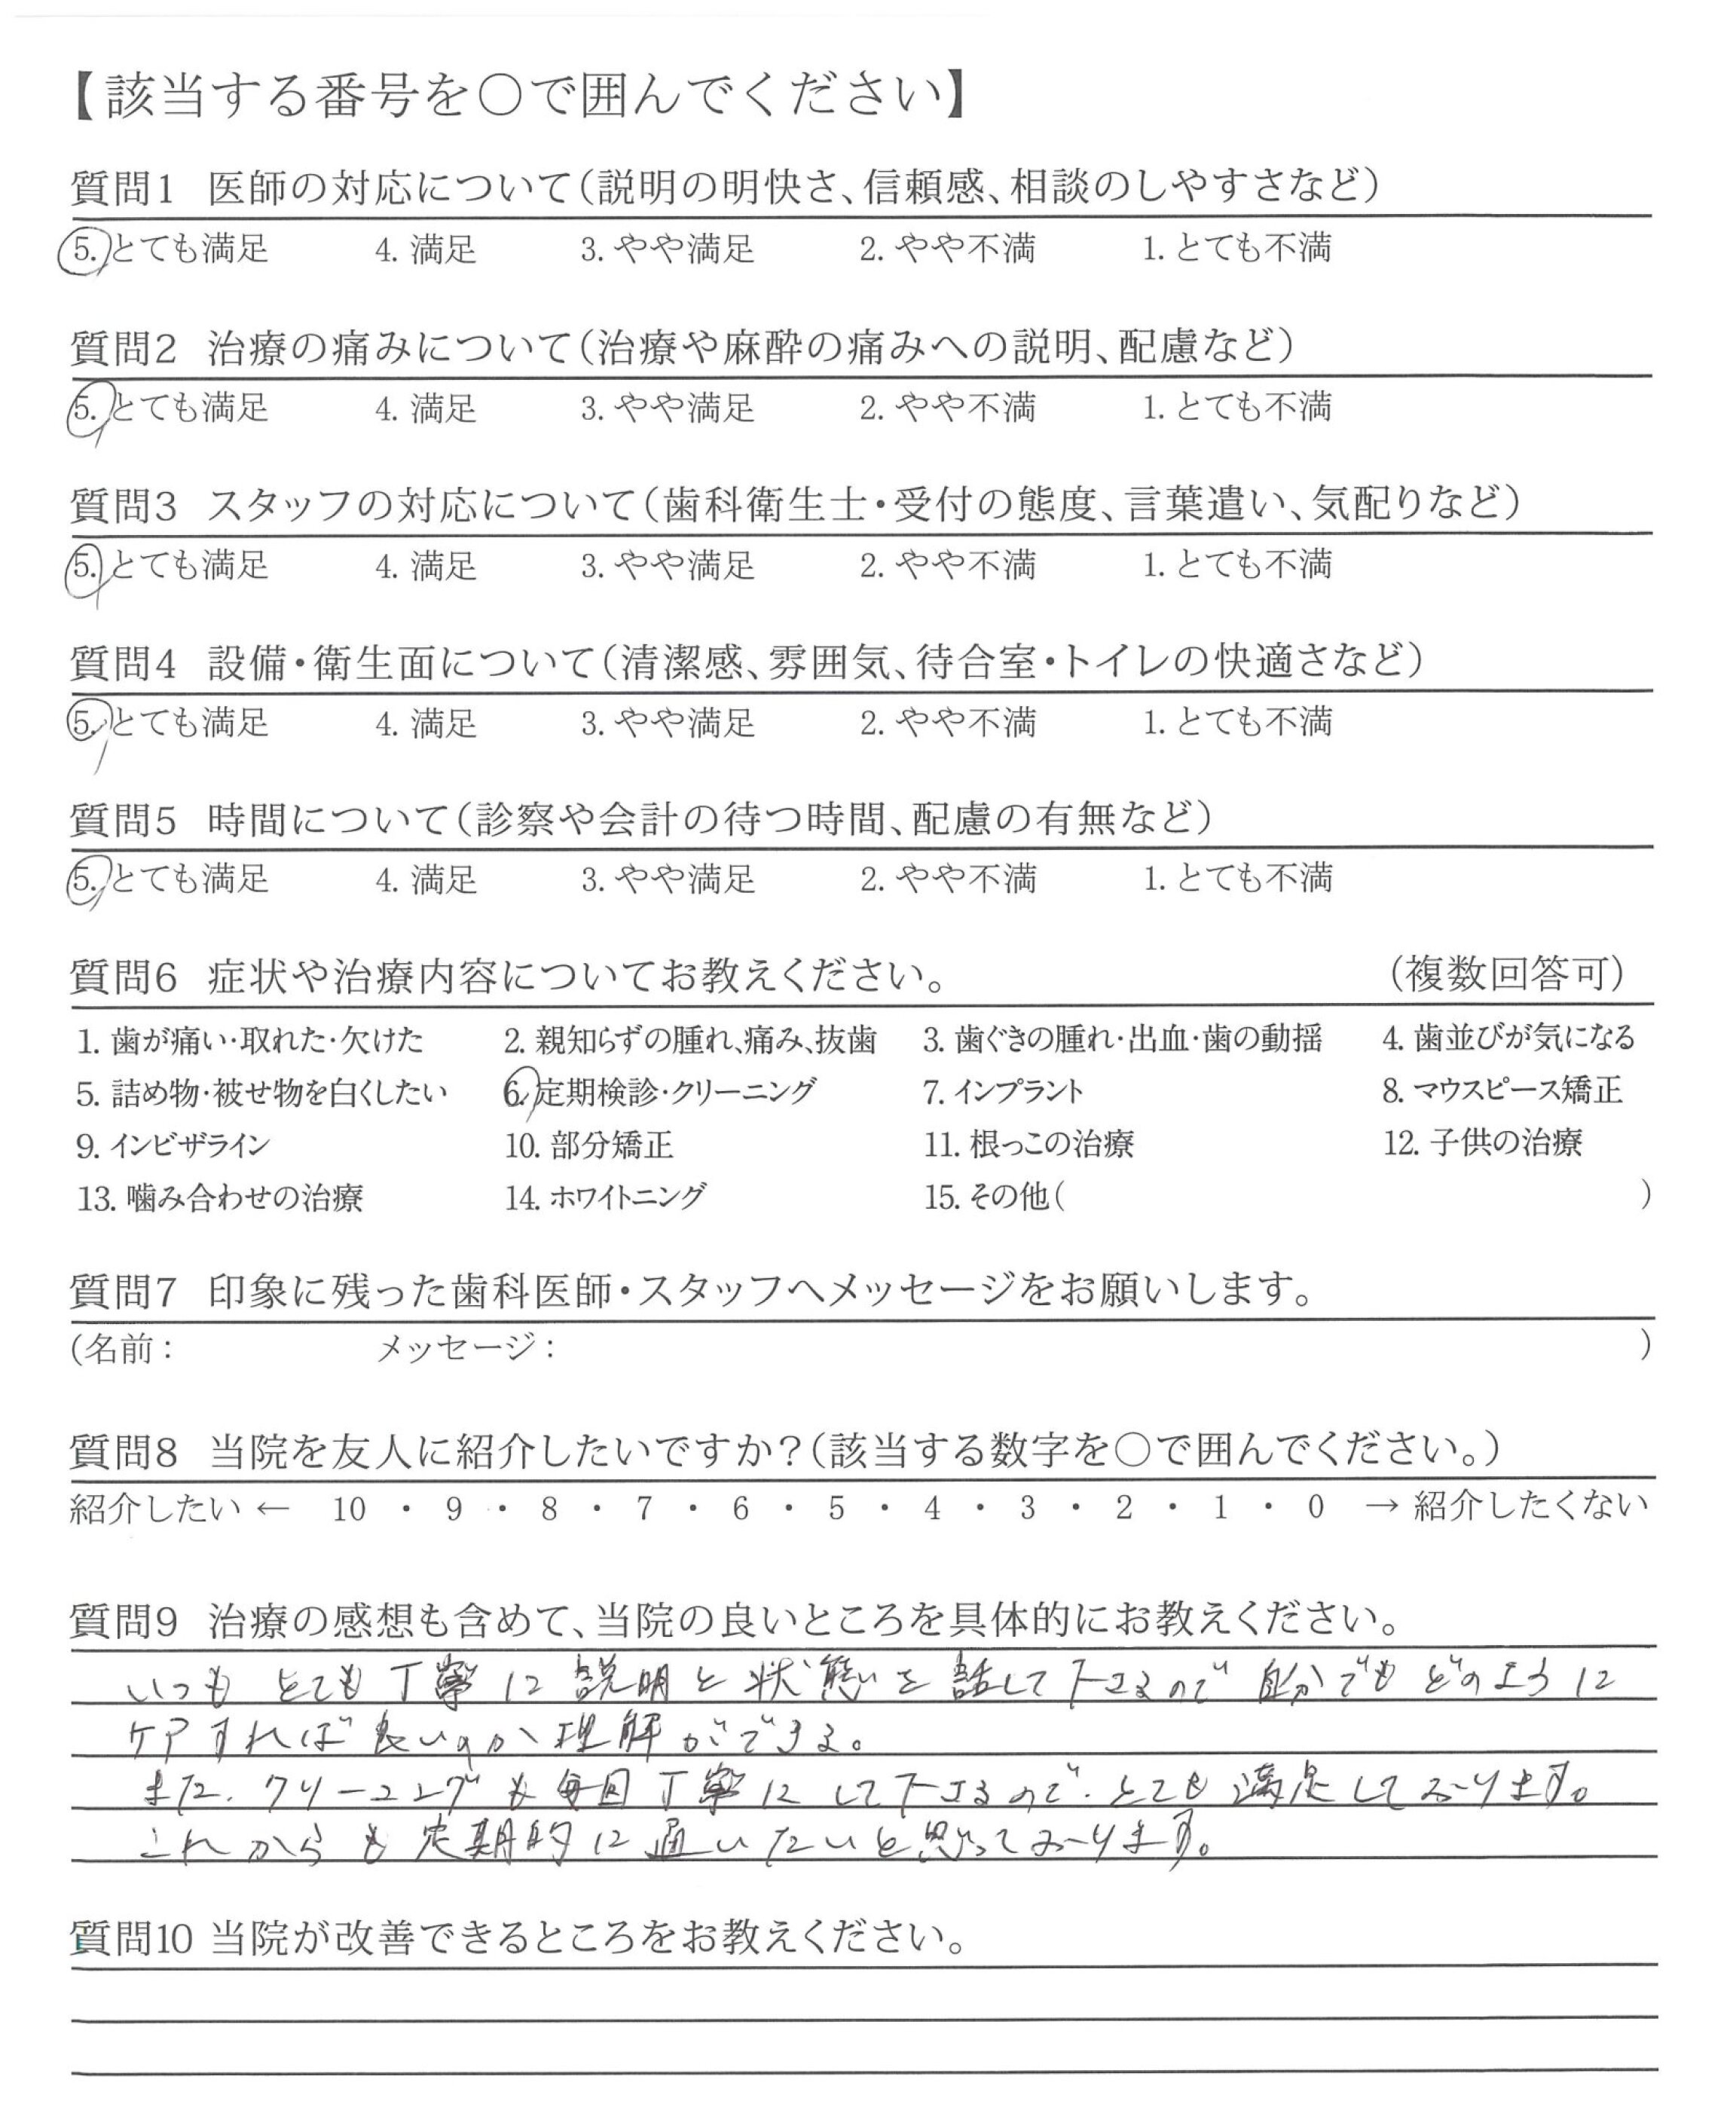 【該当する番号を○で囲んでください】
質問1 医師の対応について(説明の明快さ、信頼感、相談のしやすさなど)
5. とても満足 4. 満足 3. やや満足 2. やや不満 1. とても不満
質問2 治療の痛みについて(治療や麻酔の痛みへの説明、配慮など)
5. とても満足 4. 満足 3. やや満足 2. やや不満 1. とても不満
質問3 スタッフの対応について(歯科衛生士・受付の態度、言葉遣い、気配りなど)
5. とても満足 4. 満足 3. やや満足 2. やや不満 1. とても不満
質問4 設備・衛生面について(清潔感、雰囲気、待合室・トイレの快適さなど)
5. とても満足 4. 満足 3. やや満足 2. やや不満 1. とても不満
質問5 時間について(診察や会計の待つ時間、配慮の有無など)
5. とても満足 4. 満足 3. やや満足 2. やや不満 1. とても不満
質問6 症状や治療内容についてお教えください。 (複数回答可)
1. 歯が痛い・取れた・欠けた 2. 親知らずの腫れ、痛み、抜歯 3. 歯ぐきの腫れ・出血・歯の動揺 4. 歯並びが気になる
5. 詰め物・被せ物を白くしたい 6. 定期検診・クリーニング 7. インプラント 8. マウスピース矯正
9. インビザライン 10. 部分矯正 11. 根っこの治療 12. 子供の治療
13. 噛み合わせの治療 14. ホワイトニング 15. その他( )
質問7 印象に残った歯科医師・スタッフへメッセージをお願いします。
(名前: メッセージ: )
質問8 当院を友人に紹介したいですか?(該当する数字を○で囲んでください。)
紹介したい ← 10 ・ 9 ・ 8 ・ 7 ・ 6 ・ 5 ・ 4 ・ 3 ・ 2 ・ 1 ・ 0 → 紹介したくない
質問9 治療の感想も含めて、当院の良いところを具体的にお教えください。
いつも とても丁寧に説明と状態を話して下さるので自分でもどのように
ケアすれば良いのか理解ができる。
また、クリーニングも毎回丁寧にして下さるので、とても満足しております。
これからも定期的に通いたいと思っております。
質問10 当院が改善できるところをお教えください。